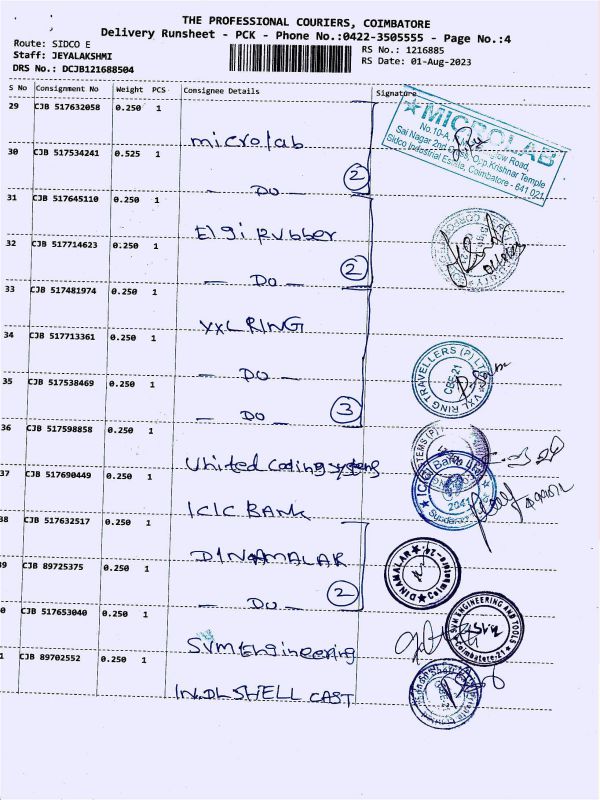 THE PROFESSIONAL COURIERS, COIMBATORE
Delivery Runsheet - PCK - Phone No.:0422-3505555 - Page No.:4
Route: SIDCO E
RS No.: 1216885
Staff: JEYALAKSHMI
RS Date: 01-Aug-2023
DRS No.: DCJB121688504
S No Consignment No Weight PCS Consignee Details Signature
29 CJB 517632058 0.250 1
microlab
MICROLAB
Sai Nagar 2nd
Opp.Krishnar Temple
Sidco Industrial Estate, Coimbatore - 641 021
30 CJB 517534241 0.525 1
— DO — 2
31 CJB 517645110 0.250 1
Elgi Rubber
32 CJB 517714623 0.250 1
— DO — 2
33 CJB 517481974 0.250 1
VXL RING
34 CJB 517713361 0.250 1
— DO —
VXL RING TRAVELLERS (P) LTD
CBE-21
35 CJB 517538469 0.250 1
— DO — 3
36 CJB 517598858 0.250 1
United coding systems
37 CJB 517690449 0.250 1
ICIC BANK
ICICI Bank Ltd
2041
38 CJB 517632517 0.250 1
DINAMALAR
DINAMALAR
9 CJB 89725375 0.250 1
— DO — 2
0 CJB 517653040 0.250 1
SVM Engineering
SVM ENGINEERING AND TOOLS
Coimbatore-21
1 CJB 89702552 0.250 1
IN.DL SHELL CAST